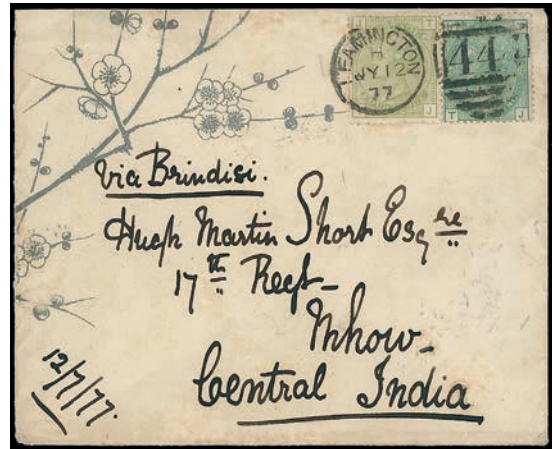 LEAMINGTON
H
JY 12
77
44
J
T J
via Brindisi.
Hugh Martin Short Esqre
17th Regt-
Mhow-
Central India
12/7/77.